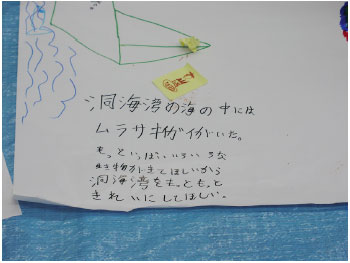 洞海湾の海の中には
ムラサキイガイがいた。
もっといっぱいいろいろな
生き物がきてほしいから
洞海湾をもっともっと
きれいにしてほしい。